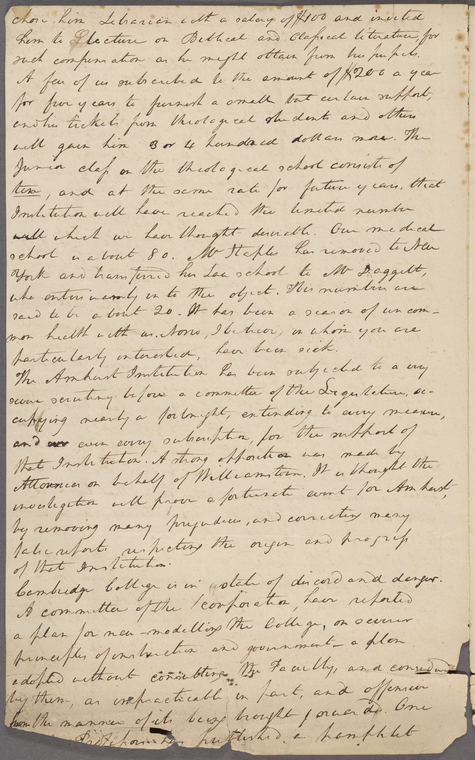 chose him Librarian with a salary of $100 and invited
him to lecture on Biblical and Classical literature for
such compensation as he might obtain from his pupils.
A few of us subscribed to the amount of $200 a year
for five years to furnish a small but certain support,
and his tickets from theological students and others
will gain him 3 or 4 hundred dollars more. The
Junior class in the theological school consists of
ten, and at the same rate for future years, that
Institution will have reached the limited number
which we have thought desirable. Our medical
school is about 80. Mr Staples has removed to New
York and transferred his Law school to Mr Daggett,
who enters warmly into the object. His numbers are
said to be about 20. It has been a season of uncom-
mon health with us. None, I believe, in whom you are
particularly interested, have been sick.
The Amherst Institution has been subjected to a very
severe scrutiny before a committee of the Legislature, oc-
cupying nearly a fortnight, extending to every measure,
and even every subscription, for the support of
that Institution. A strong opposition was made by
Attornies on behalf of Williamstown. It is thought the
investigation will prove a fortunate event for Amherst,
by removing many prejudices, and correcting many
false reports respecting the origin and progress
of that Institution.
Cambridge College is in state of discord and danger.
A committee of the Corporation, have reported
a plan for new-modelling the College, on severer
principles of instruction and government—a plan
adopted without consulting the Faculty, and considered
by them, as impracticable in part, and offensive
from the manner of its being brought forward. One
published a pamphlet